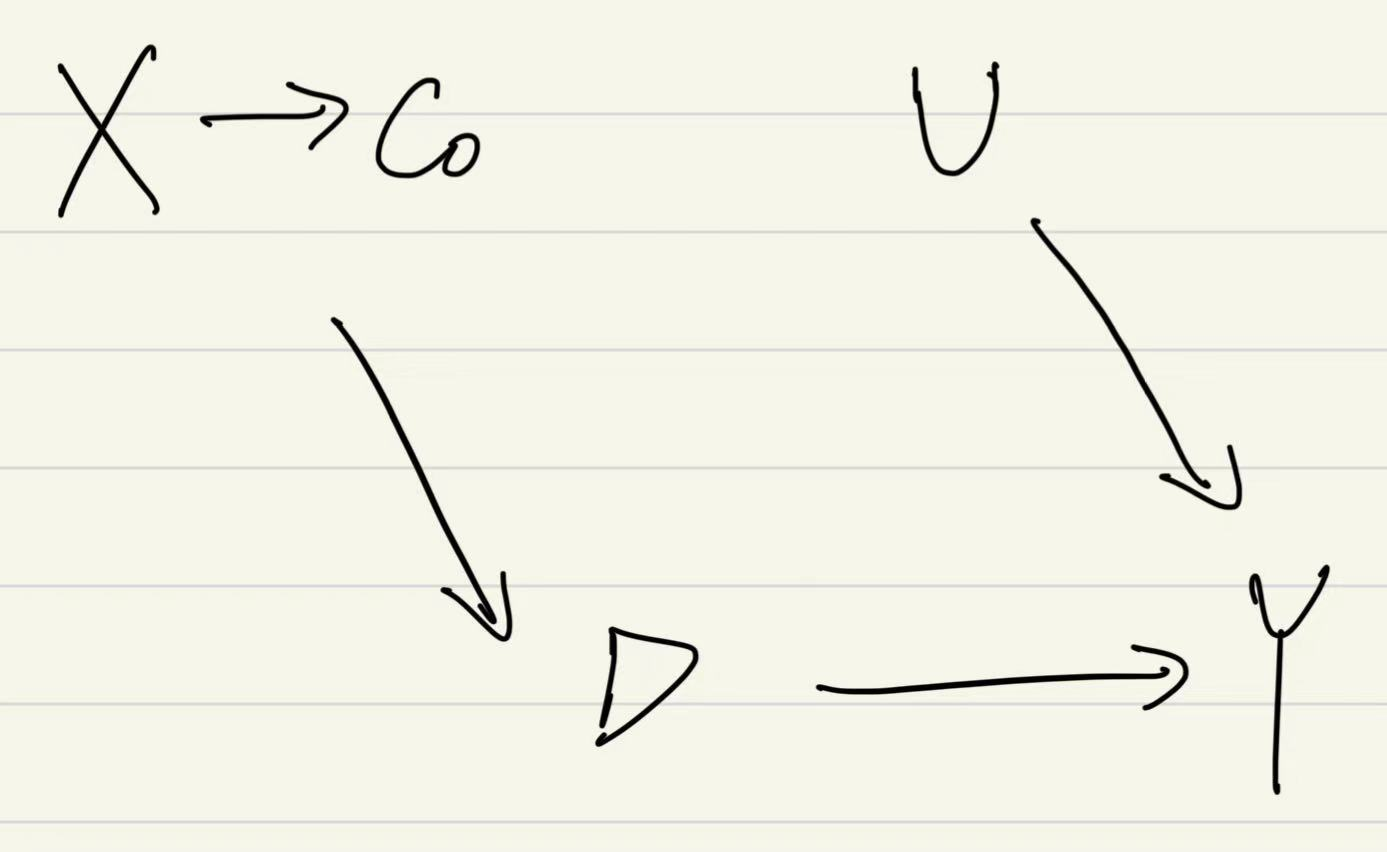 X → Co U
D → Y